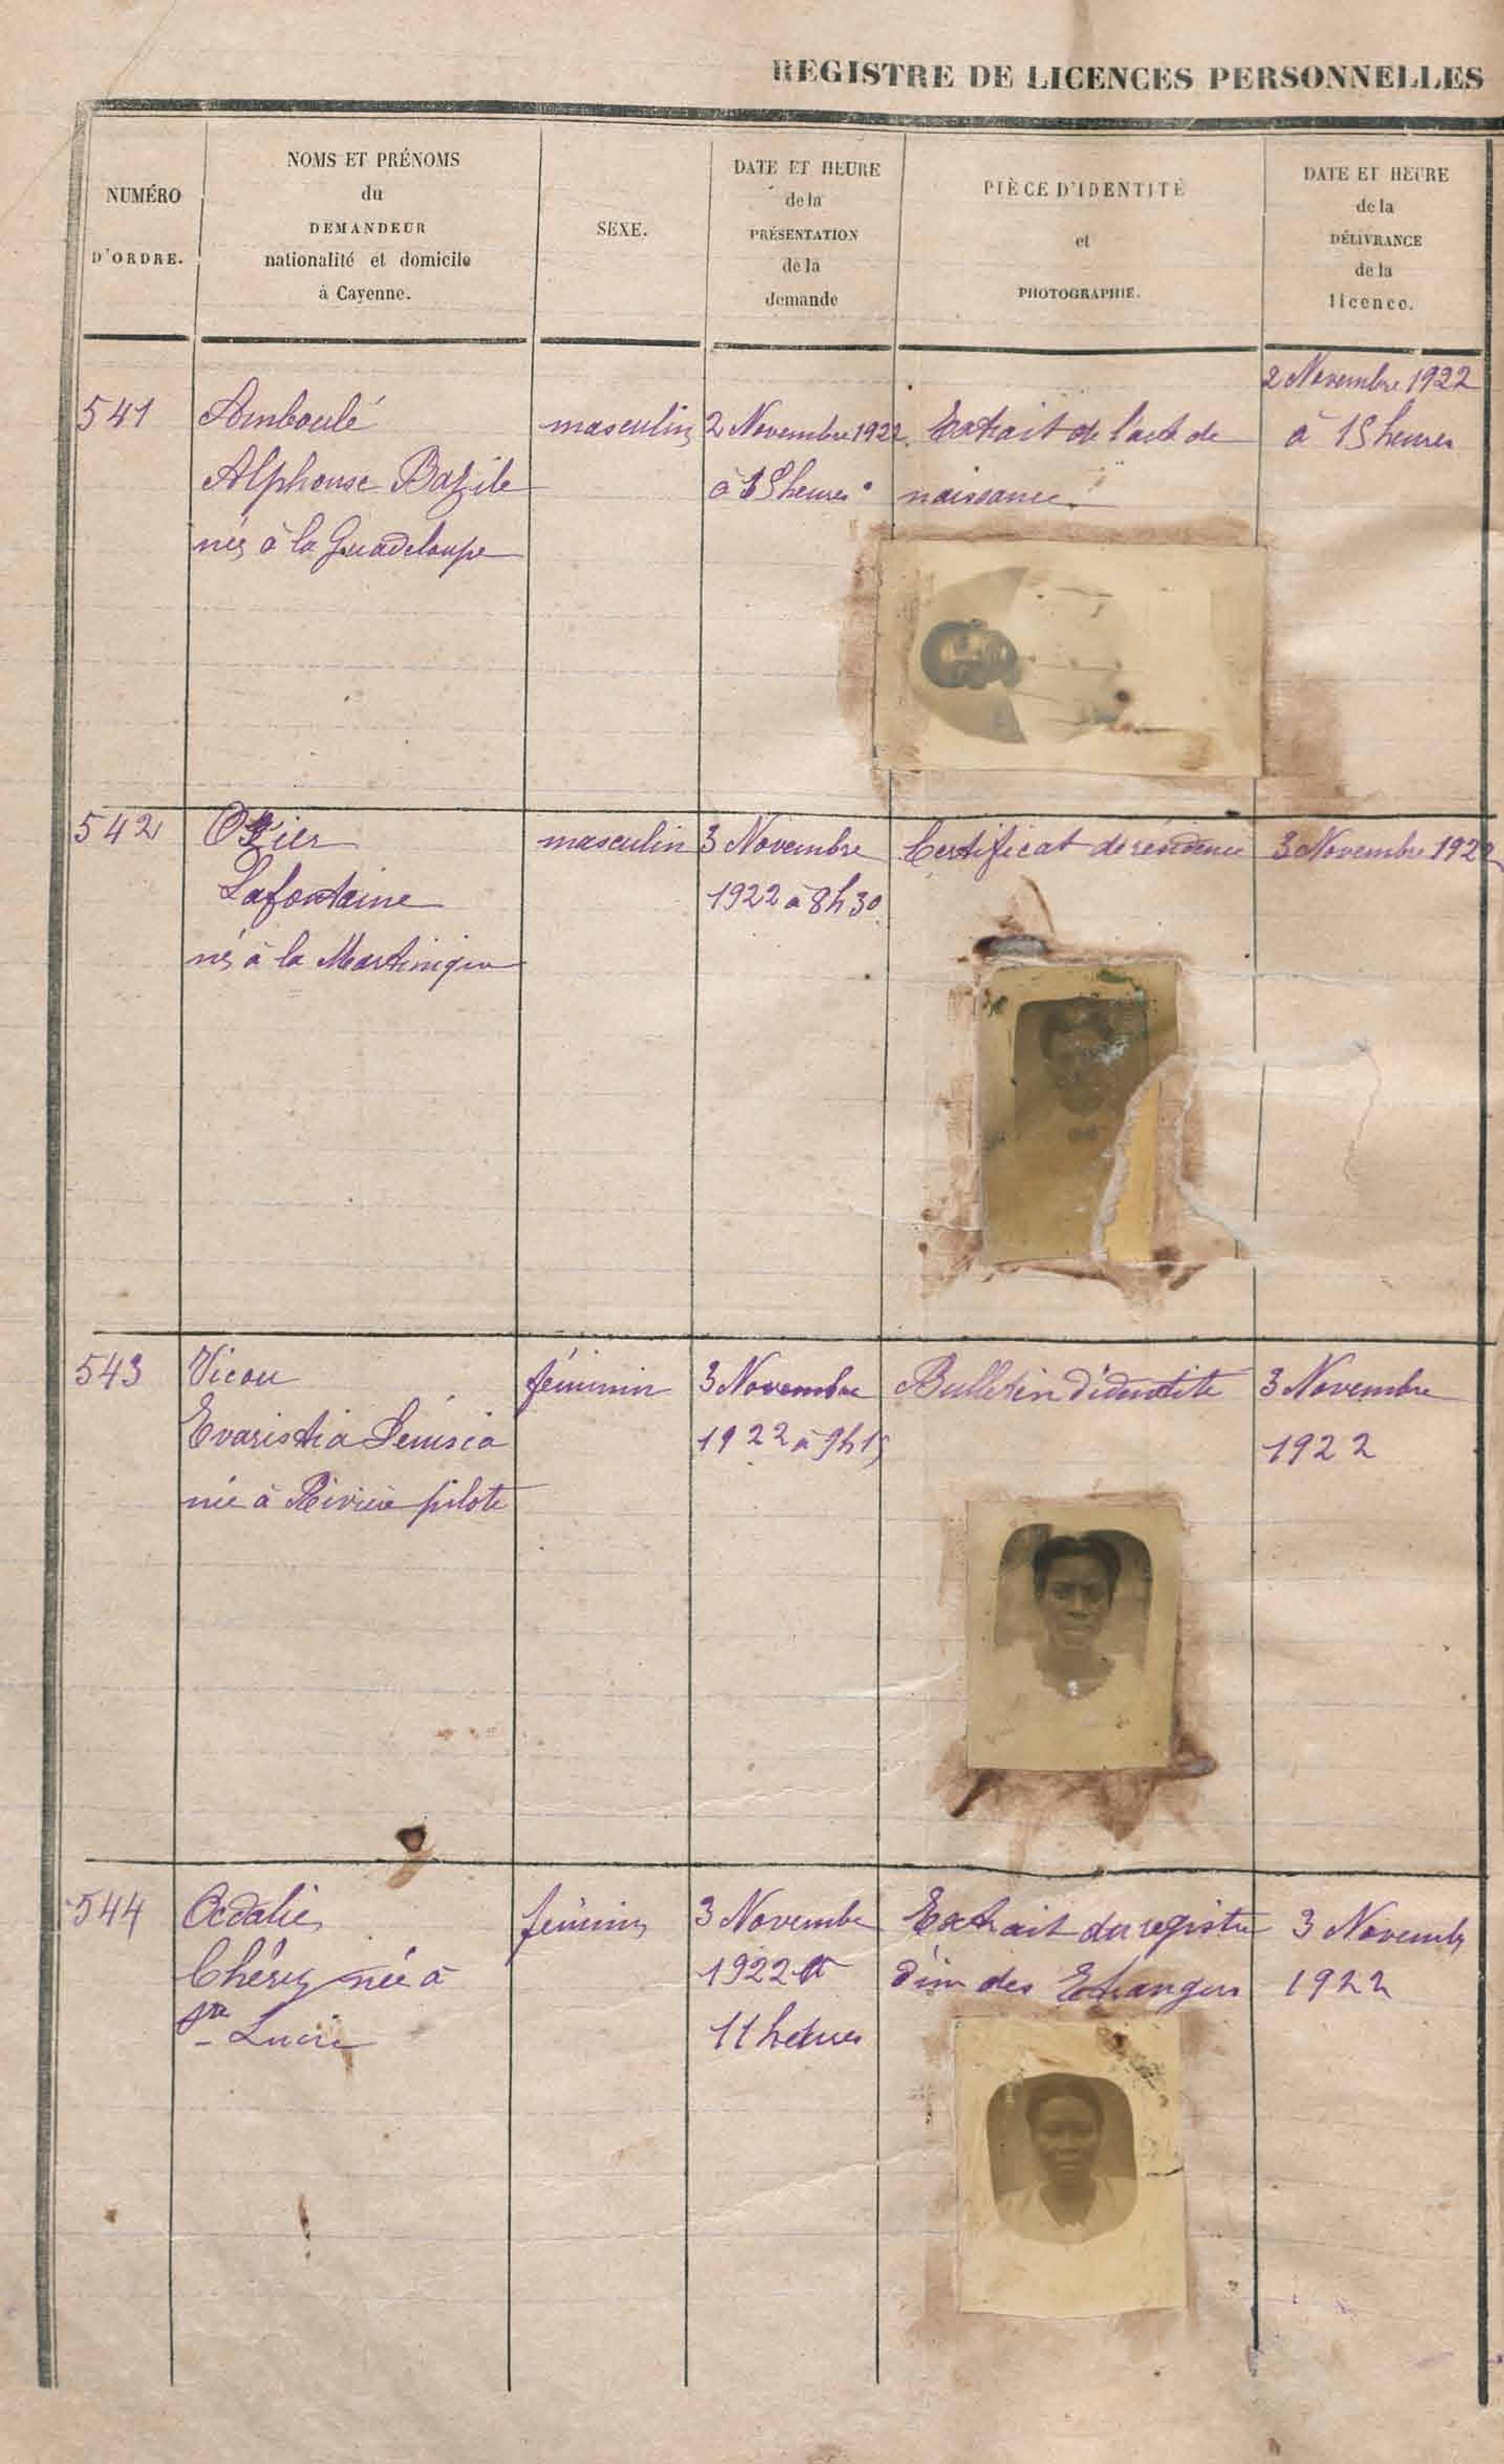 REGISTRE DE LICENCES PERSONNELLES
NUMÉRO
D'ORDRE.
NOMS ET PRÉNOMS
du
DEMANDEUR
nationalité et domicile
à Cayenne.
SEXE.
DATE ET HEURE
de la
PRÉSENTATION
de la
demande
PIÈCE D'IDENTITÉ
et
PHOTOGRAPHIE.
DATE ET HEURE
de la
DÉLIVRANCE
de la
licence.
541
Amboulé
Alphonse Bazile
né à la Guadeloupe
masculin
2 Novembre 1922
à 15 heures
Extrait de l'acte de
naissance
2 Novembre 1922
à 15 heures
542
Ozier
Lafontaine
né à la Martinique
masculin
3 Novembre
1922 à 8h30
Certificat de résidence
3 Novembre 1922
543
Vicou
Evaristia
née à Rivière pilote
féminin
3 Novembre
1922 à 9h15
Bulletin d'identité
3 Novembre
1922
544
Odalie
Chéry née à
Ste Lucie
féminin
3 Novembre
1922 à
11 heures
Extrait du registre
d'im des Etrangers
3 Novembre
1922